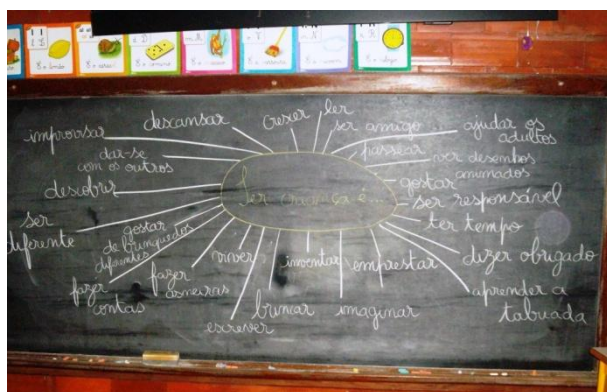 Ser criança é...
improvisar
descansar
crexer
ler
ser amigo
passear
ajudar os
adultos
ver desenhos
animados
gostar
ser responsável
ter tempo
dizer obrigado
aprender a
tabuada
emprestar
imaginar
inventar
brincar
escrever
viver
fazer
asneiras
fazer
contas
gostar
de brinquedos
diferentes
ser
diferente
descobrir
dar-se
com os outros